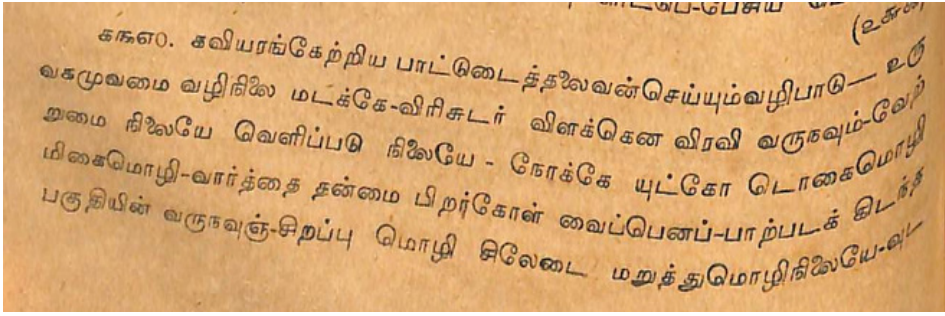 (உ௬௯)
க௩௭0. கவியரங்கேற்றிய பாட்டுடைத்தலைவன்செய்யும்வழிபாடு— உரு
வகமுவமை வழிநிலை மடக்கே-விரிசுடர் விளக்கென விரவி வருநவும்-வேற்
றுமை நிலையே வெளிப்படு நிலையே - நோக்கே யுட்கோ டொகைமொழி
மிகைமொழி-வார்த்தை தன்மை பிறர்கோள் வைப்பெனப்-பாற்படக் கிடந்த
பகுதியின் வருநவுஞ்-சிறப்பு மொழி சிலேடை மறுத்துமொழிநிலையே-வுட